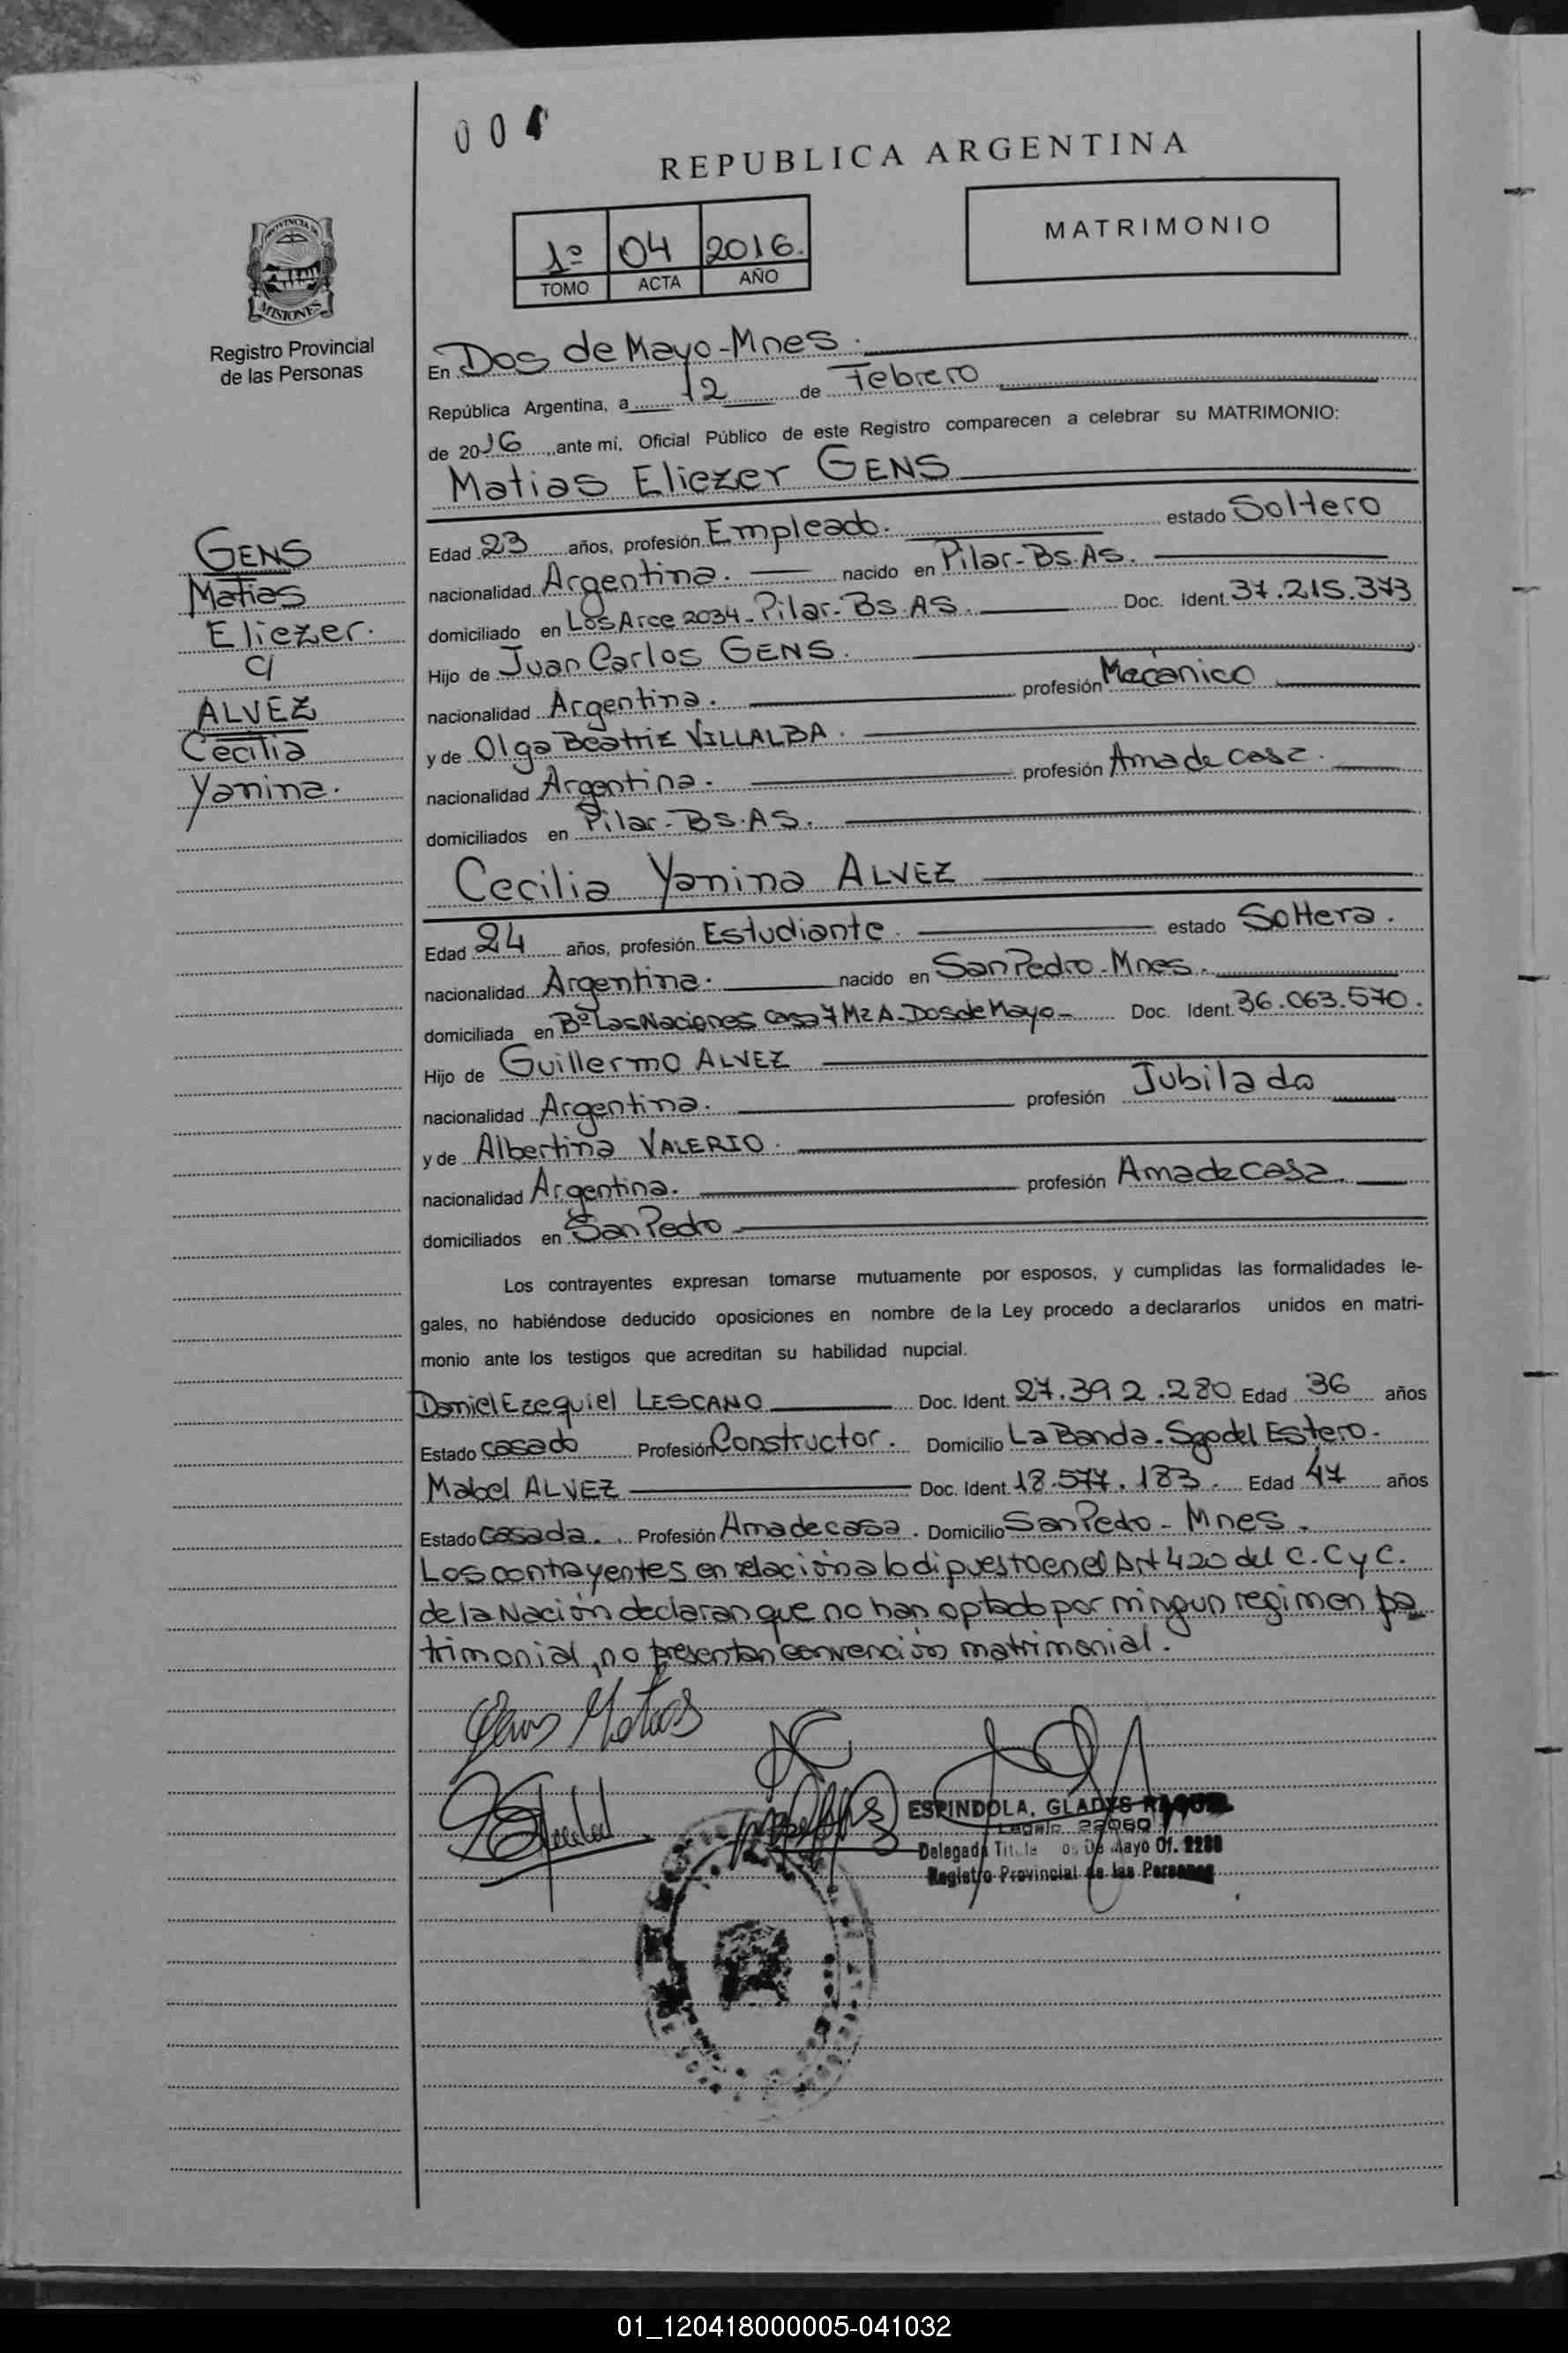 004
REPUBLICA ARGENTINA
MATRIMONIO
1º 04 2016.
TOMO ACTA AÑO
PROVINCIA DE
MISIONES
Registro Provincial
de las Personas
En Dos de Mayo-Mnes.
República Argentina, a 12 de Febrero
de 2016 ante mí, Oficial Público de este Registro comparecen a celebrar su MATRIMONIO:
Matias Eliezer GENS
GENS
Matias
Eliezer.
c/
ALVEZ
Cecilia
Yanina.
Edad 23 años, profesión Empleado. estado Soltero
nacionalidad Argentina. nacido en Pilar-Bs.As.
domiciliado en Los Arce 2034-Pilar-Bs.AS. Doc. Ident. 37.215.373
Hijo de Juan Carlos GENS.
nacionalidad Argentina. profesión Mecánico
y de Olga Beatriz VILLALBA.
nacionalidad Argentina. profesión Ama de casa.
domiciliados en Pilar-Bs.AS.
Cecilia Yanina ALVEZ
Edad 24 años, profesión Estudiante. estado Soltera.
nacionalidad Argentina. nacido en San Pedro-Mnes.
domiciliada en Bº Las Naciones casa 7 Mz A-Dos de Mayo- Doc. Ident. 36.063.570.
Hijo de Guillermo ALVEZ
nacionalidad Argentina. profesión Jubilado
y de Albertina VALERIO.
nacionalidad Argentina. profesión Ama de casa.
domiciliados en San Pedro
Los contrayentes expresan tomarse mutuamente por esposos, y cumplidas las formalidades le-
gales, no habiéndose deducido oposiciones en nombre de la Ley procedo a declararlos unidos en matri-
monio ante los testigos que acreditan su habilidad nupcial.
Daniel Ezequiel LESCANO Doc. Ident. 27.392.280 Edad 36 años
Estado casado Profesión Constructor. Domicilio La Banda-Sgo del Estero.
Mabel ALVEZ Doc. Ident. 18.577.183. Edad 47 años
Estado casada. Profesión Ama de casa. Domicilio San Pedro-Mnes.
Los contrayentes en relación a lo dipuesto en el Art 420 del C.CyC.
de la Nación declaran que no han optado por ningun regimen pa-
trimonial, no presentan convención matrimonial.
Gens Matias
ESPINDOLA, GLADYS RAQUEL
Legajo 22060
Delegada Titular Dos De Mayo Of.
Registro Provincial de las Personas
01_120418000005-041032